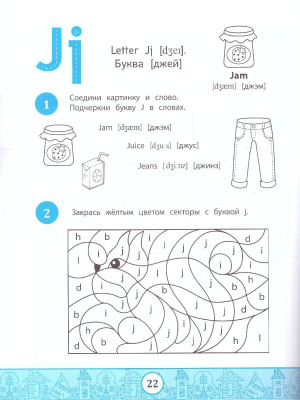 Jj
Letter Jj [dʒeɪ].
Буква [джей]
Jam
[dʒæm] [джэм]
1 Соедини картинку и слово.
Подчеркни букву J в словах.
Jam [dʒæm] [джэм]
Juice [dʒuːs] [джус]
Jeans [dʒiːnz] [джинз]
2 Закрась жёлтым цветом секторы с буквой j.
22